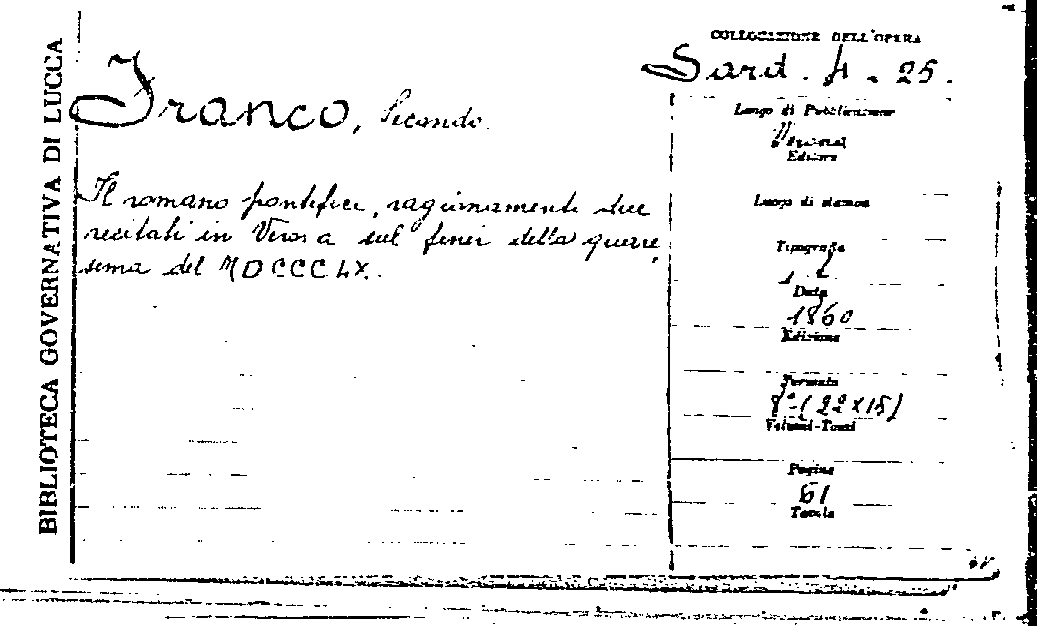 BIBLIOTECA GOVERNATIVA DI LUCCA
Franco, Secondo.
Il romano pontefice, ragionamenti due
recitati in Verona sul finir della quare,
sema del MDCCCLX.
COLLOCAZIONE DELL'OPERA
Sard. 4. 25.
Luogo di Pubblicazione
Editore
Luogo di stampa
Tipografia
Data
1860
Edizione
Formato
8°-(22x15)
Volumi-Tomi
Pagine
61
Tavole